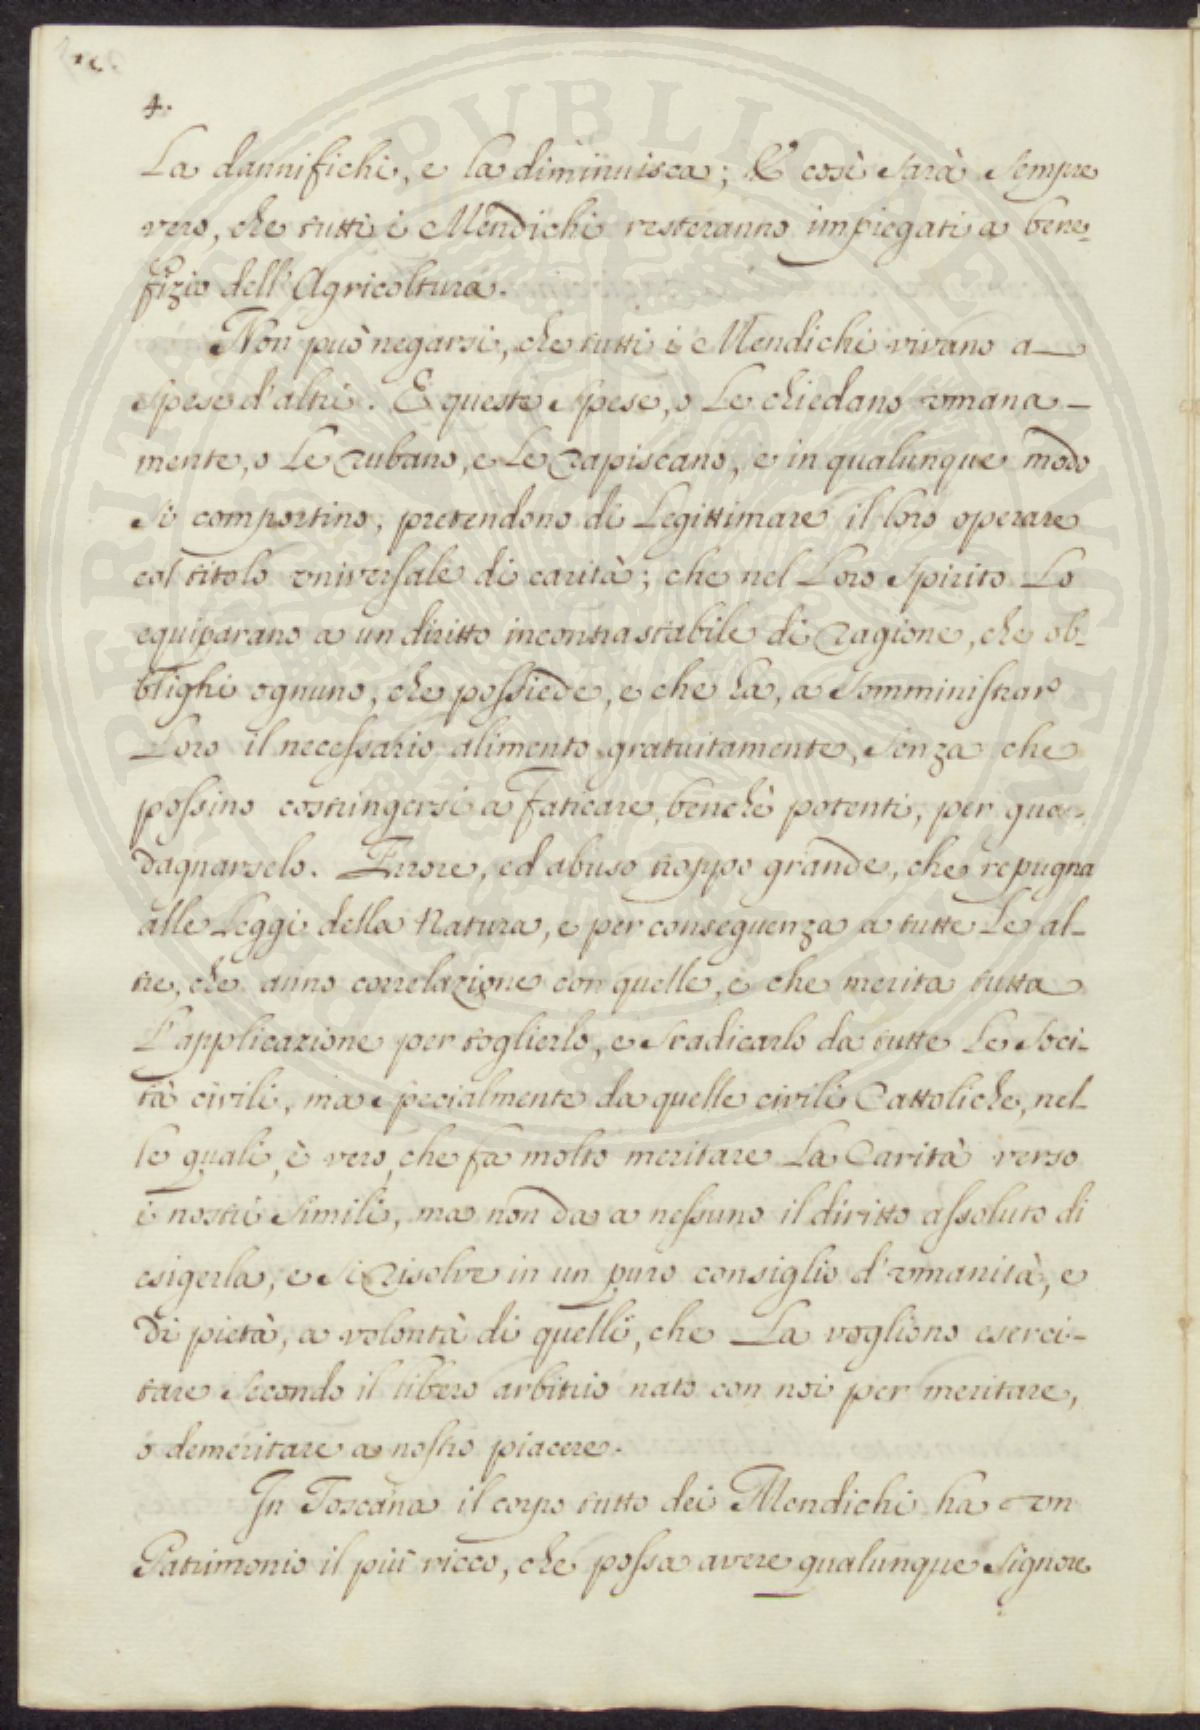 4.
La dannifichi, e la diminuisca; E così sarà sempre
vero, che tutti i Mendichi resteranno impiegati a bene-
fizio dell'Agricoltura.
Non può negarsi, che tutti i Mendichi vivano a
spese d'altri. E queste spese, o Le chiedano vmana-
mente, o Le rubano, e Le rapiscano, e in qualunque modo
si comportino, pretendono di Legittimare il loro operare
col titolo vniversale di carità; che nel Loro Spirito Lo
equiparano a un diritto incontrastabile di ragione, che ob-
blighi ognuno, che possiede, e che ha, a somministrar
Loro il necessario alimento gratuitamente, senza che
possino costringersi a faticare, benchè potenti, per gua-
dagnarselo. Errore, ed abuso troppo grande, che repugna
alle Leggi della Natura, e per conseguenza a tutte Le al-
tre, che anno correlazione con quelle, e che merita tutta
L'applicazione per toglierlo, e sradicarlo da tutte Le Soci-
tà civili, ma specialmente da quelle civili Cattoliche, nel-
le quali, è vero, che fa molto meritare La Carità verso
i nostri simili, ma non da a nessuno il diritto assoluto di
esigerla, e si risolve in un puro consiglio d'vmanità, e
di pietà, a volontà di quelli, che La vogliono eserci-
tare secondo il libero arbitrio nato con noi per meritare,
o demeritare a nostro piacere.
In Toscana il corpo tutto dei Mendichi ha vn
Patrimonio il più ricco, che possa avere qualunque Signore
PVBLICAE